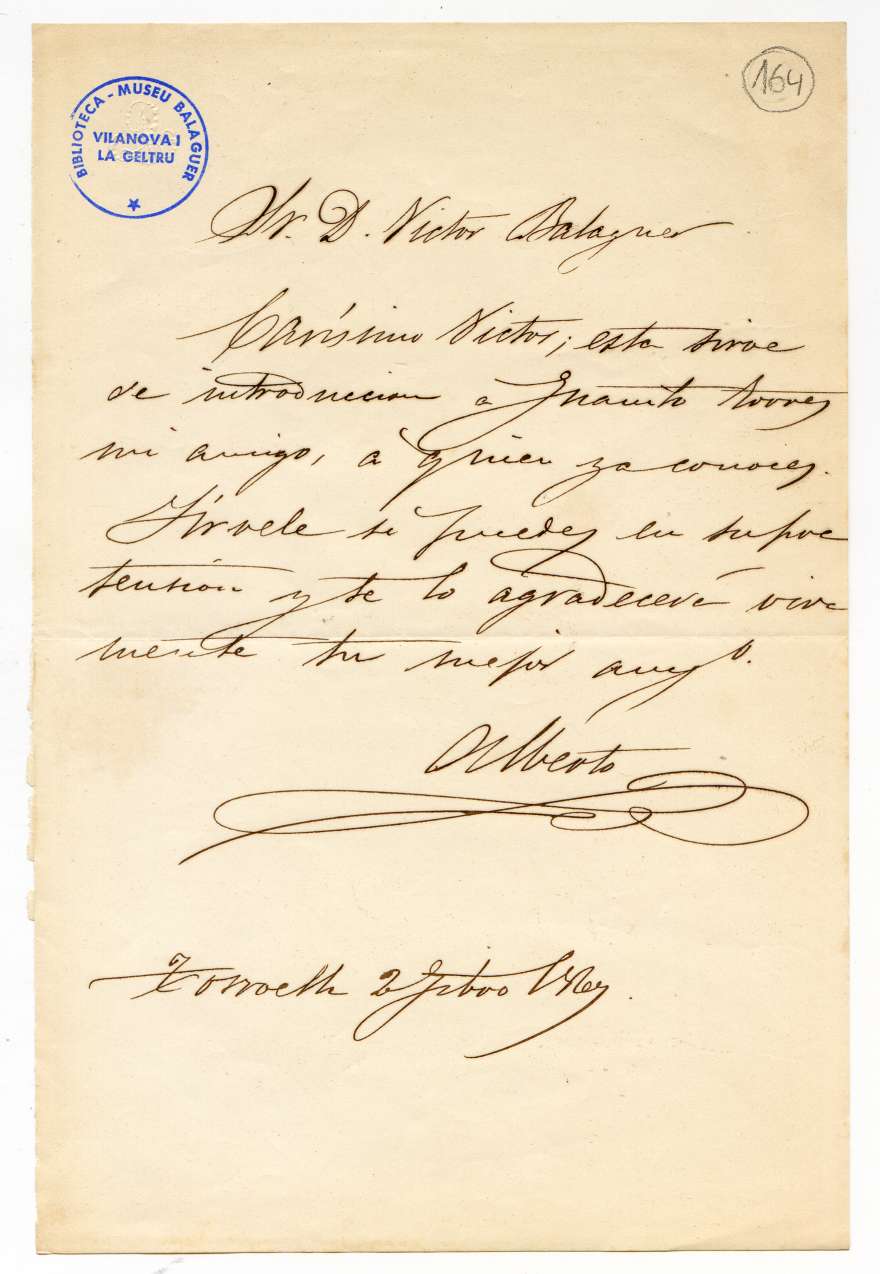 BIBLIOTECA - MUSEU BALAGUER
VILANOVA I
LA GELTRU
164
Sr. D. Victor Balaguer
Carísimo Victor; esta sirve
de introduccion á Juanito torres
mi amigo, á quien ya conoces.
Sírvele si puedes en su pre
tensión y te lo agradecerá viva
mente tu mejor amigo.
Alberto
Torroella 2